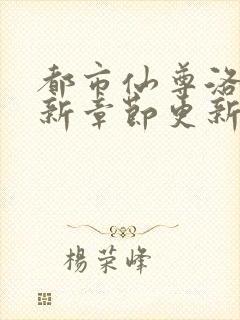 都市仙尊洛
新章節更新
楊榮峰